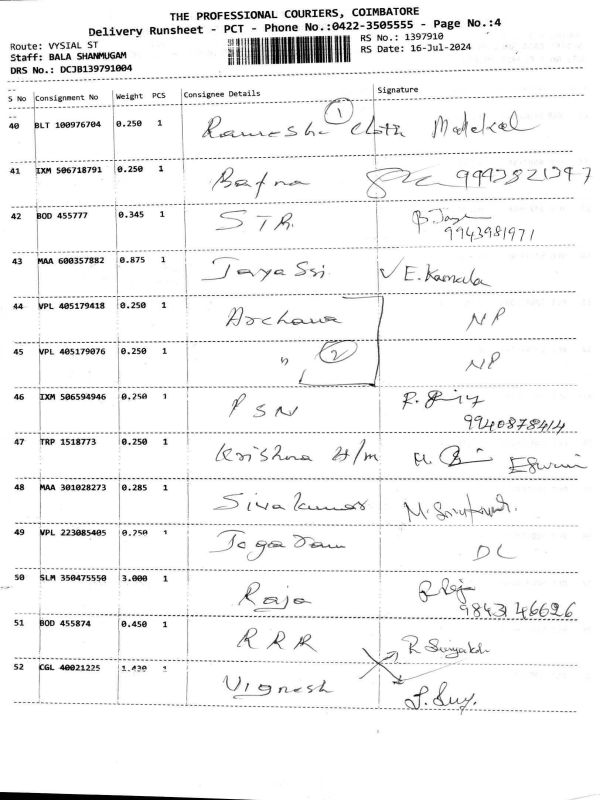 THE PROFESSIONAL COURIERS, COIMBATORE
Delivery Runsheet - PCT - Phone No.:0422-3505555 - Page No.:4
Route: VYSIAL ST
RS No.: 1397910
Staff: BALA SHANMUGAM
RS Date: 16-Jul-2024
DRS No.: DCJB139791004
S No Consignment No Weight PCS Consignee Details Signature
40 BLT 100976704 0.250 1 Ramesha Cloth 1
41 IXM 506718791 0.250 1 Bafna
42 BOD 455777 0.345 1 STR
9943981971
43 MAA 600357882 0.875 1 E. Kamala
44 VPL 405179418 0.250 1 Archana NP
45 VPL 405179076 0.250 1 " 2 NP
46 IXM 506594946 0.250 1 PSN
9940878414
47 TRP 1518773 0.250 1 Krishna H/m
48 MAA 301028273 0.285 1 Sivakumar
49 VPL 223085405 0.250 1 DL
50 SLM 350475550 3.000 1 Raja
9843146626
51 BOD 455874 0.450 1 RRR
52 CGL 40021225 1.430 1 Vignesh